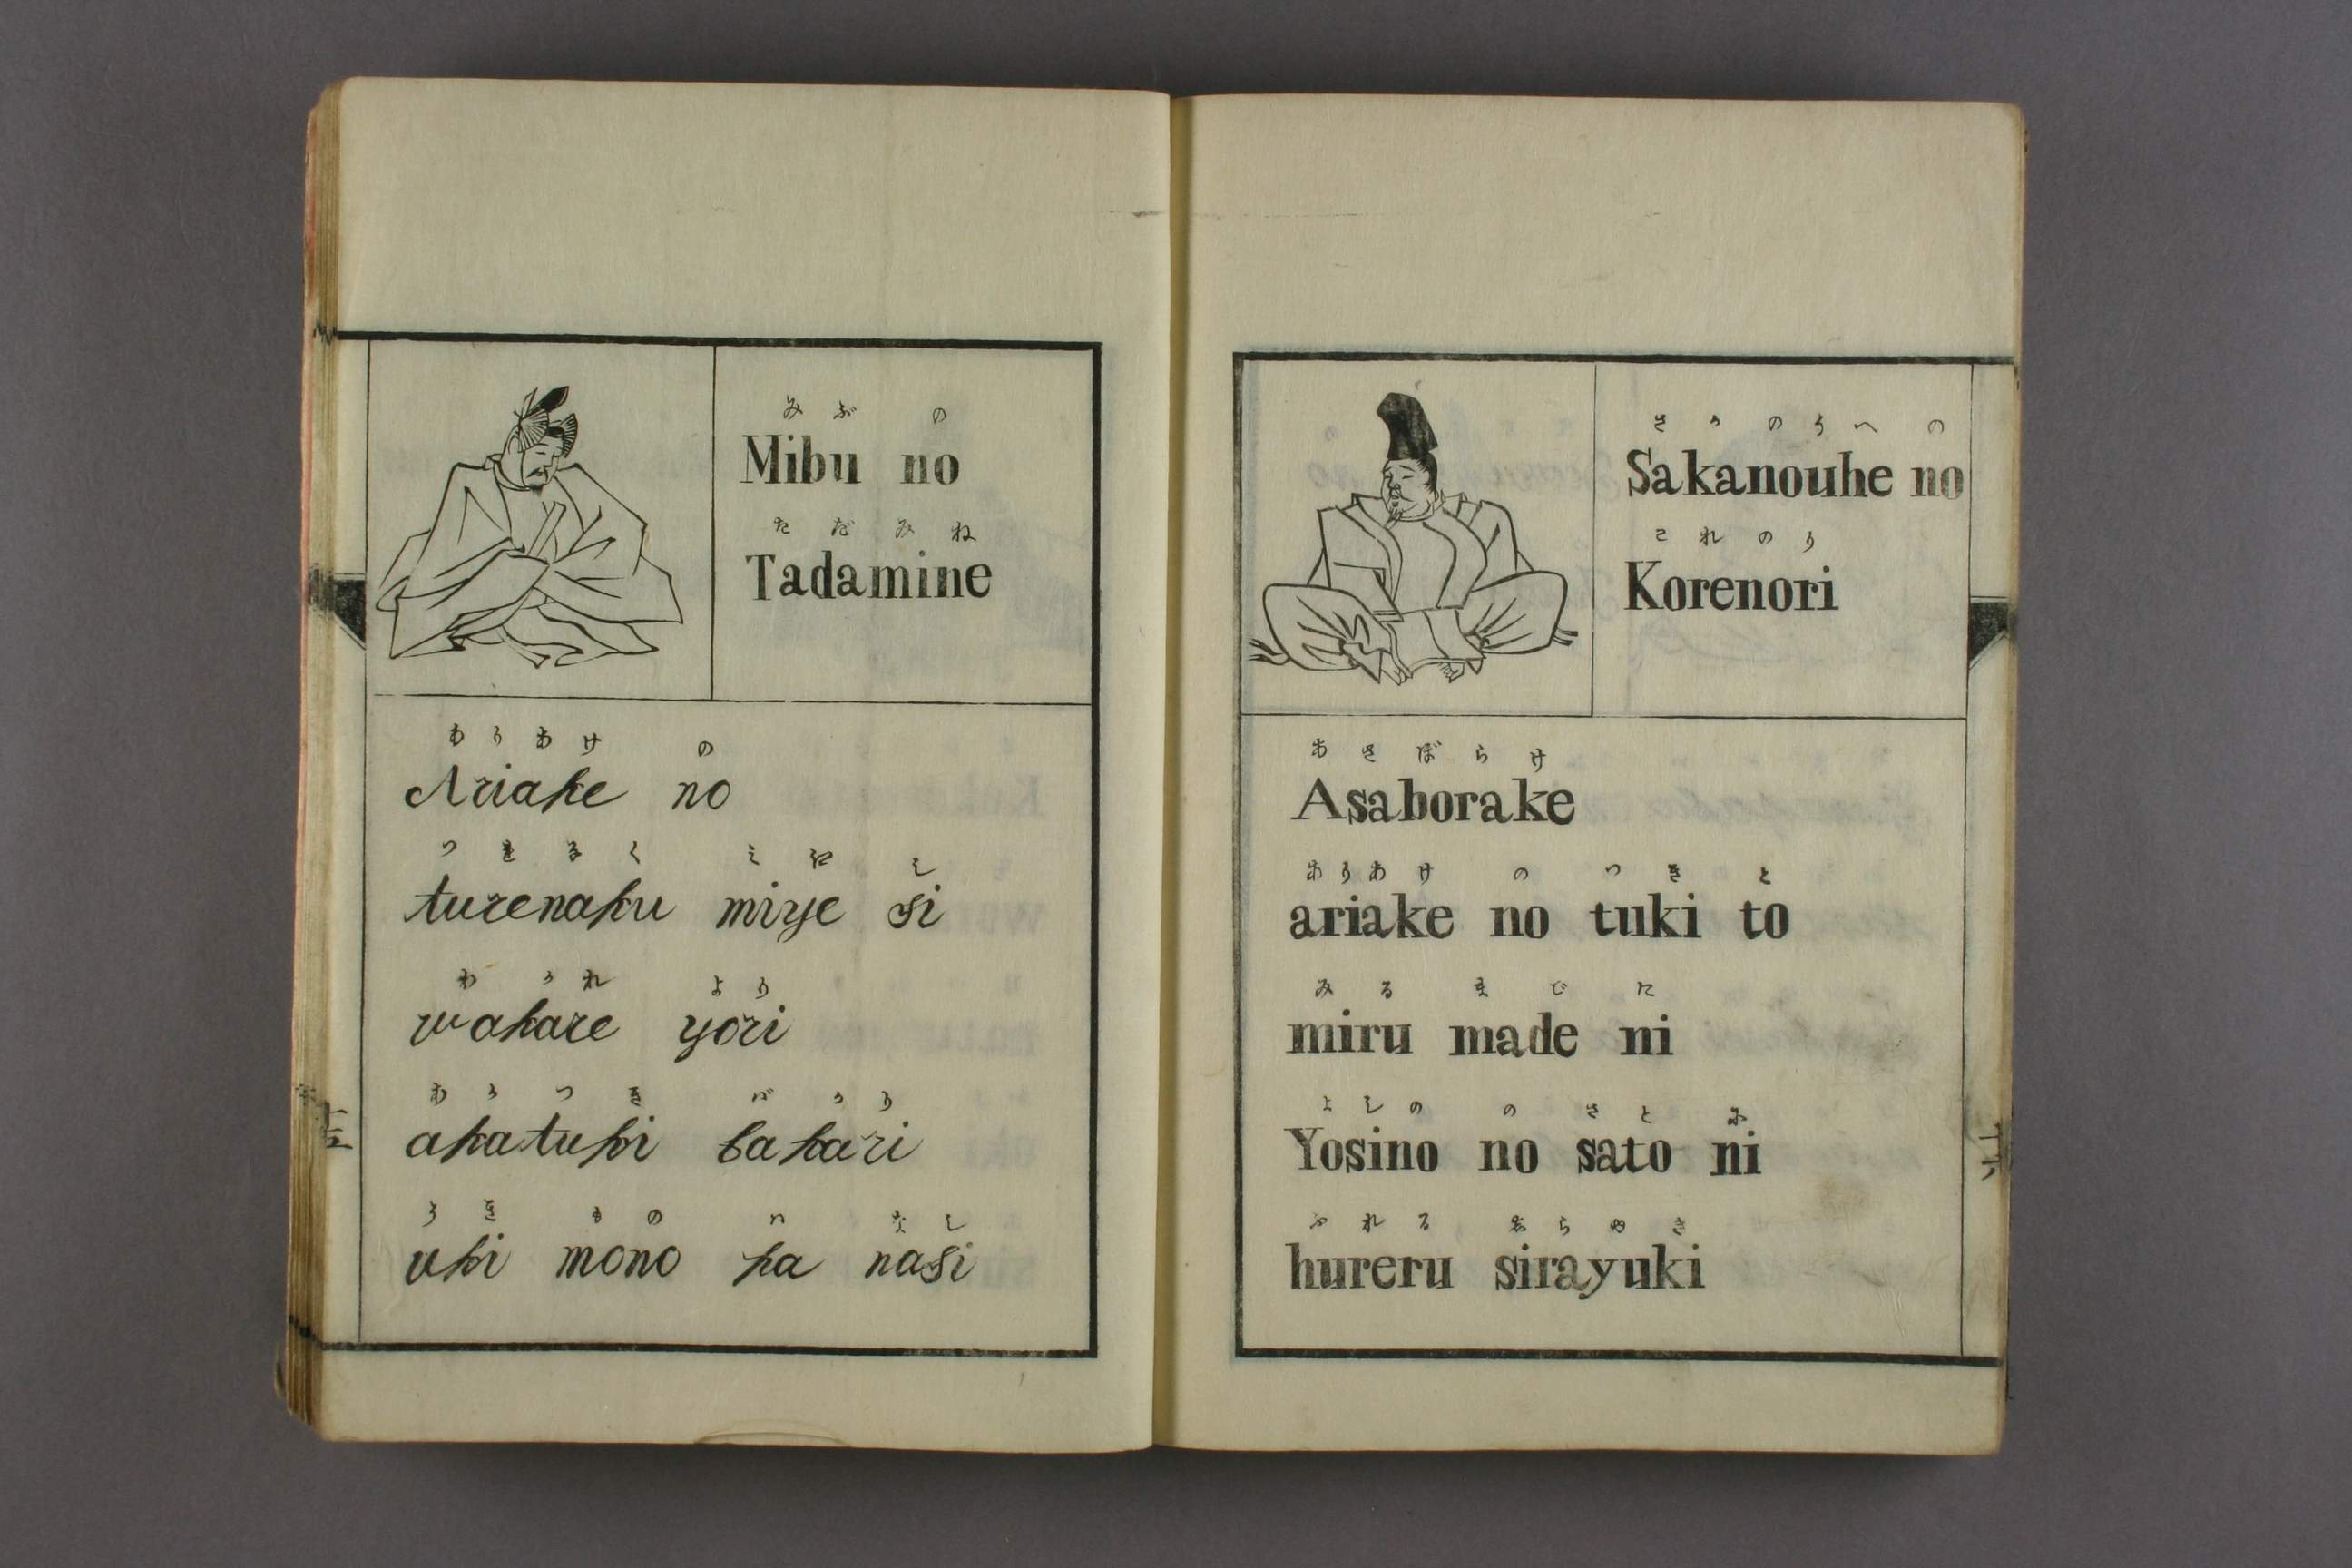 みぶ の
Mibu no
ただみね
Tadamine
ありあけ の
Ariake no
つれなく ミに し
turenaku miye si
わかれ より
wakare yori
あかつき ばかり
akatuki bakari
うき もの ハ なし
uki mono ha nasi
さかのうへ の
Sakanouhe no
これのり
Korenori
あさぼらけ
Asaborake
ありあけ の つき と
ariake no tuki to
みる まで に
miru made ni
よしの の さと に
Yosino no sato ni
ふれる しらゆき
hureru sirayuki